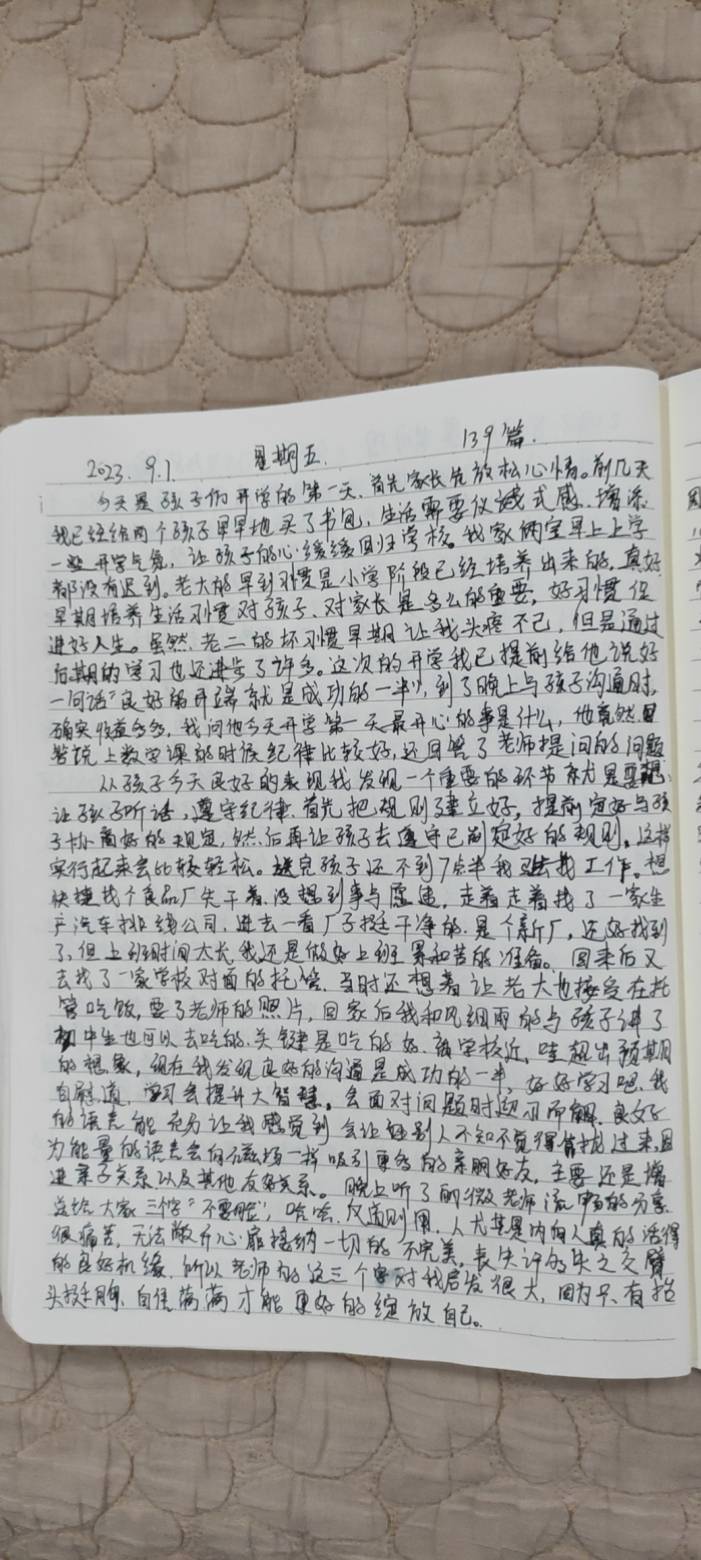 2023.9.1 星期五. 139篇.
今天是孩子们开学的第一天.首先家长先放松心情。前几天
我已经给两个孩子早早地买了书包,生活需要仪式感.增添
一些开学气氛,让孩子的心缓缓回归学校。我家俩宝早上上学
都没有迟到。老大的早到习惯是小学阶段已经培养出来的,真好
早期培养生活习惯对孩子、对家长是多么的重要,好习惯促
进好人生。虽然老二的坏习惯早期让我头疼不已,但是通过
后期的学习也还进步了许多。这次的开学我已提前给他说好
一句话"良好的开端就是成功的一半",到了晚上与孩子沟通时,
确实收益多多,我问他今天开学第一天最开心的事是什么,他竟然回
答说上数学课的时候纪律比较好,还回答了老师提问的问题
从孩子今天良好的表现我发现一个重要的环节就是要想
让孩子听话,遵守纪律.首先把规则建立好,提前定好与孩
子协商好的规定,然后再让孩子去遵守已制定好的规则,这样
实行起来会比较轻松。送完孩子还不到7点半我去找工作,想
快捷找个食品厂先干着,没想到事与愿违,走着走着找了一家生
产汽车排线公司,进去一看厂子挺干净的.是个新厂,还好找到
了,但上班时间太长,我还是做好上班累和苦的准备。回来后又
去找了一家学校对面的托管.当时还想着让老大也接受在托
管吃饭,要了老师的照片,回家后我和风细雨的与孩子讲了
初中生也可以去吃的.关键是吃的好.离学校近,哇超出预期
的想象,现在我发现良好的沟通是成功的一半,好好学习吧.我
自慰道,学习会提升大智慧,会面对问题时迎刃而解.良好
的语言能充分让我感觉到会让别人不知不觉得靠拢过来,因
为能量的语言会向磁场一样吸引更多的亲朋好友,主要还是增
进亲子关系以及其他友好关系。晚上听了丽微老师流畅的分享
送给大家三个字"不要脸",哈哈,反道则用,人尤其是内向人真的活得
很痛苦,无法敞开心扉接纳一切的不完美,丧失许多失之交臂
的良好机缘,所以老师的这三个字对我启发很大,因为只有抬
头挺胸.自信满满才能更好的绽放自己。